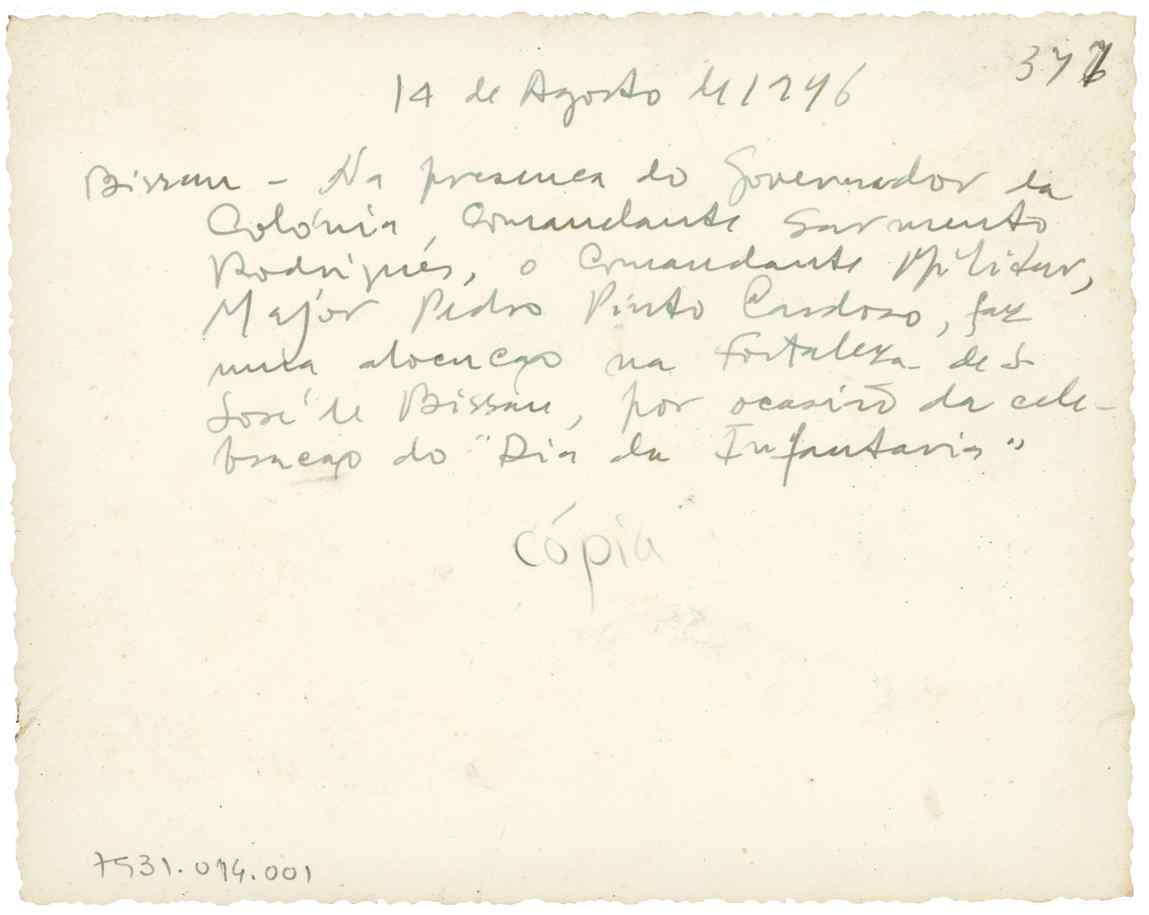 14 de Agosto de 1946
Bissau - Na presença do Governador da
Colónia, Comandante Sarmento
Rodrigues, o Comandante Militar,
Major Pedro Pinto Cardoso, faz
uma alocução na Fortaleza de S
José de Bissau, por ocasião da cele-
bração do "Dia da Infantaria"
cópia
7531.074.001